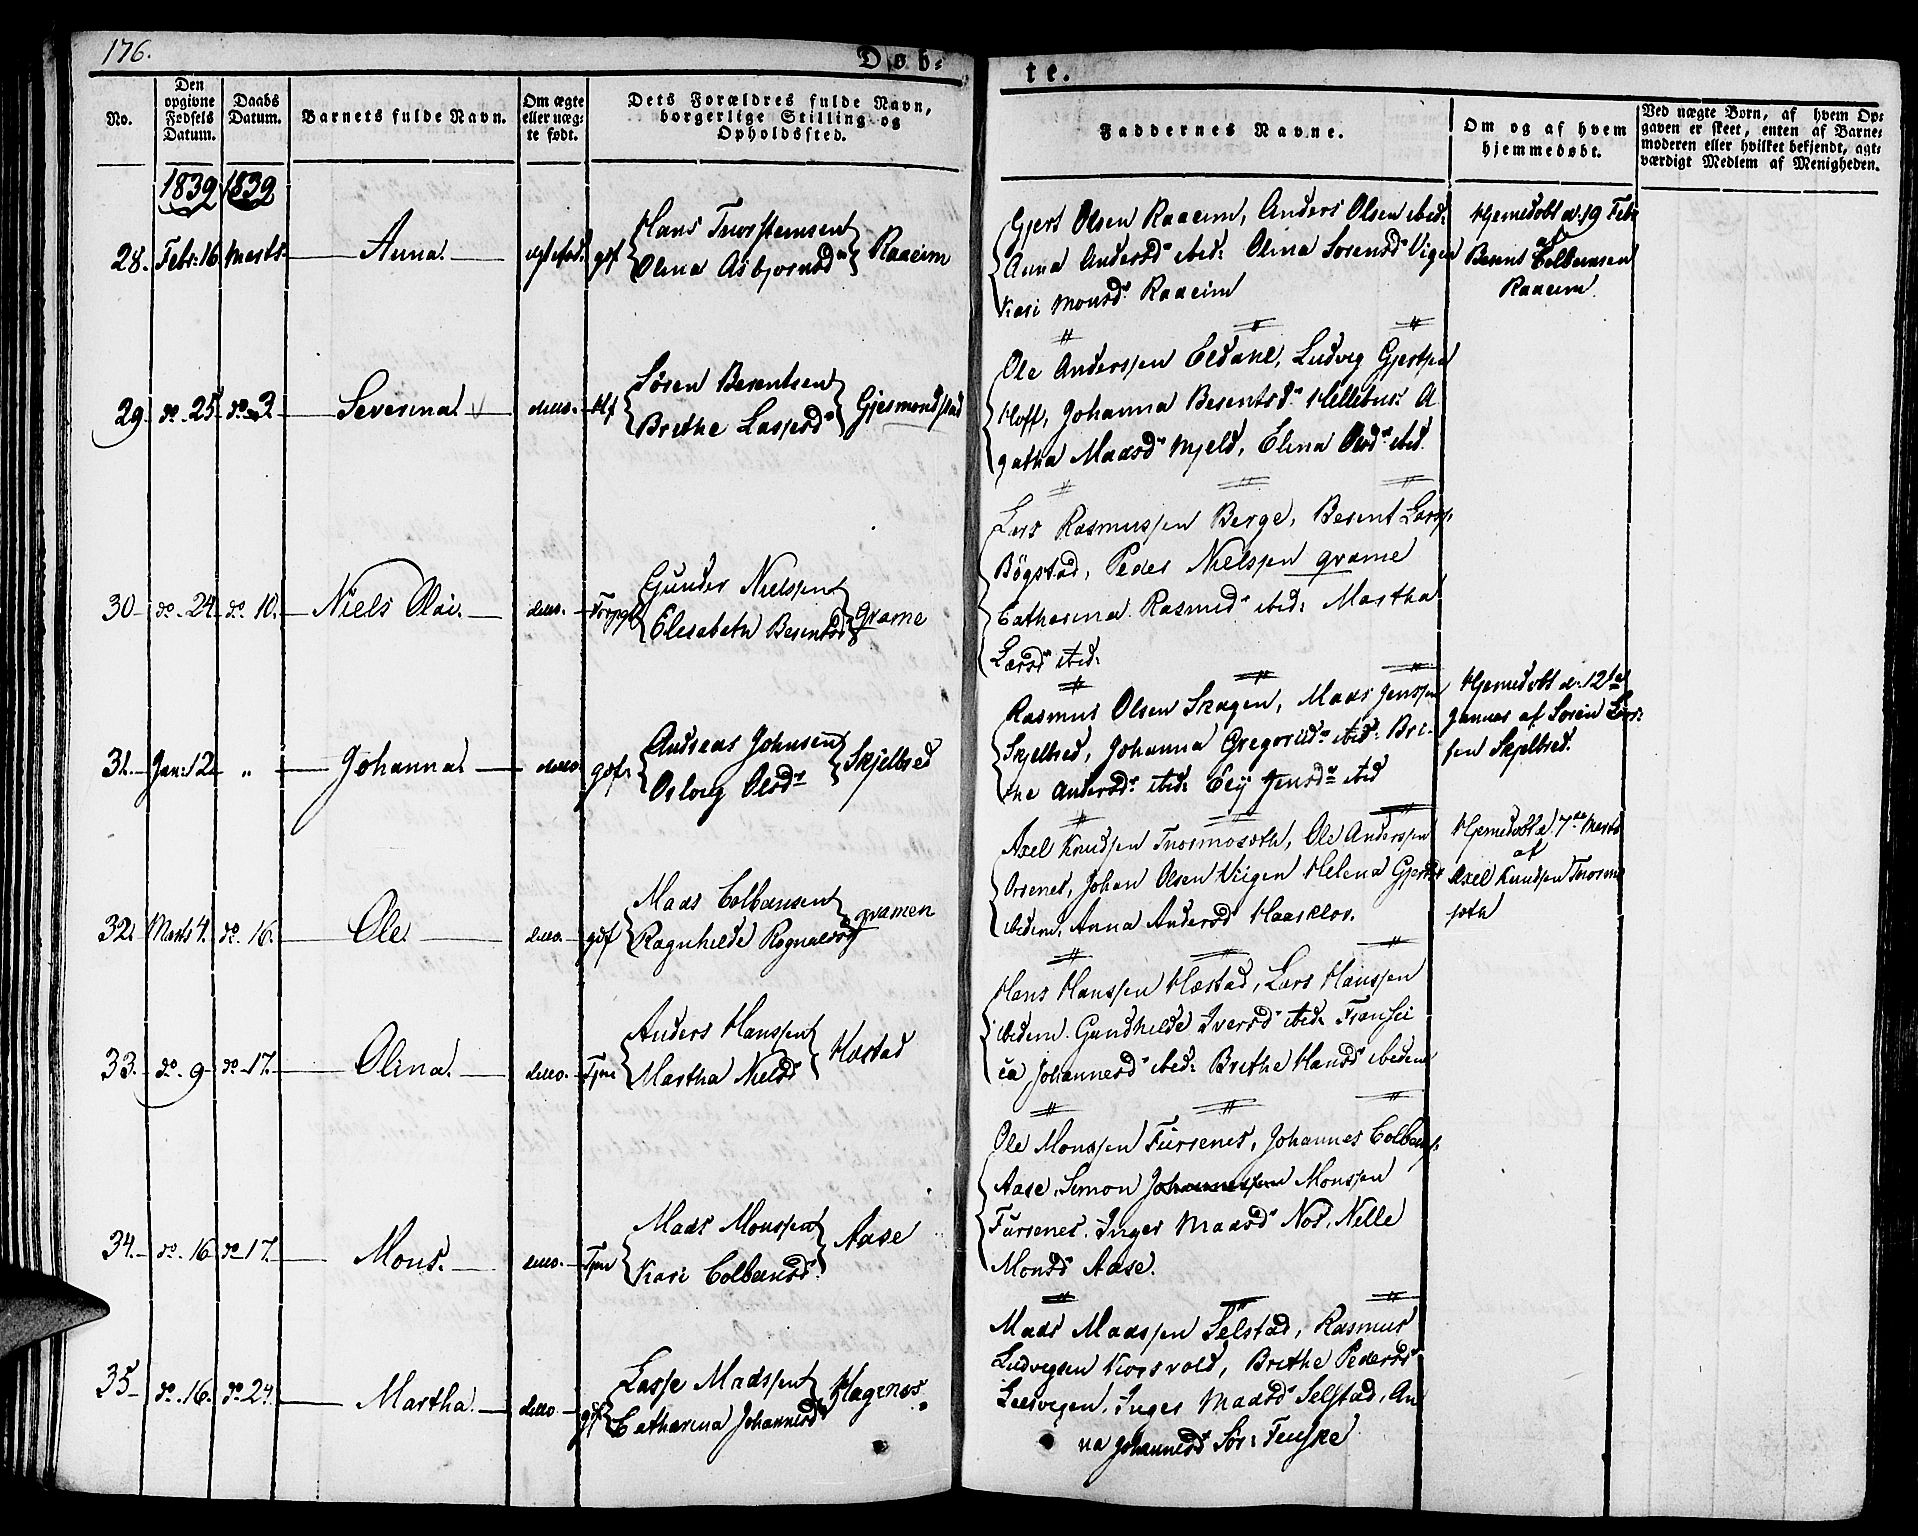 176.
Døb-
te.
No.
Den
opgivne
Fødsels
Datum.
Daabs
Datum.
Barnets fulde Navn.
Om ægte
eller uæg-
te født.
Dets Forældres fulde Navn,
borgerlige Stilling og
Opholdssted.
Faddernes Navne.
Om og af hvem
hjemmedøbt.
Ved uægte Børn, af hvem Op-
gaven er skeet, enten af Barne-
moderen eller hvilket bekjendt, agt-
værdigt Medlem af Menigheden.
1839 1839
28. Febr. 16 Marts Anna. gdf Hans Thorstensen
Olina Asbjornsd Raaeim
Gjert Olsen Raaeim, Anders Olsen ibid:
Anna Andersd ibid: Olina Sorensd Vigen
Kari Monsd. Raaeim
Hjemedobt d. 19 Febr
af
Berent Colbensen
Raaeim.
29. do. 25. do 3. Severina. ditto. Hf Søren Berentsen
Brithe Lassesd Gjesmondstad
Ole Anderssen Eldane, Ludvig Gjertsen
Hoff, Johanna Berentsd Hellebust A
gatha Madsd Mjeld, Elina Olsd ibid.
30 do. 24. do. 10. Niels Olai. ditto. Gunder Nielssen
Elisabeth Berentsd Grame
Lars Rasmussen Berge, Berent Larss.
Bøgstad, Peder Nielssen Grame
Catharina Rasmusd ibid: Martha
Larsd ibid:
31. Jan: 12. " Johanna. ditto gdf. Andreas Johnsen
Oslaug Olsd Skjelbred
Rasmus Olsen Skagen, Mads Jenssen
Skjelbred, Johanna Gregoriid ibid: Bri-
the Andersd ibid: Ely Jensd ibid
Hjemedobt d. 12te
Januar af Soren Lar-
sen Skjelbred.
32. Marts 4. do. 16. Ole. ditto. gdf Mads Colbensen
Ragnhilde Rognaldsd Gramen
Axel Knudsen Thormosoth, Ole Anderssen
Orsenes, Johan Olsen Viigen Helena Gjertsd
ibidem, Anna Andersd Haasklov.
Hjemedobt d. 7de Marts
af
Axel Knudsen Thormo
soth
33. do. 9 do 17. Olina. ditto. Tjnr Anders Hanssen
Martha Nielsd Hæstad
Hans Hanssen Hæstad, Lars Hanssen
ibidem. Gundhilde Iversd ibid: Fransii
ca Johannesd ibid: Brithe Hansd ibidem
34. do. 16 do 17. Mons. ditto. Tjnr Mads Monssen
Kari Colbensd. Aase
Ole Monssen Fürsenes, Johannes Colbens.
Aase, Simon Johannessen Monssen
Fürsenes. Inger Madsd Nos, Nille
Monsd Aase.
35 do. 16. do 24. Martha. ditto gdf Lasse Madssen
Catharina Johannesd Hagenes.
Mads Madssen Selstad, Rasmus
Ludvigsen Korsvold, Brithe Pedersd
Leervegen, Inger Madsd Selstad, An
na Johannesd Sör: Fenske